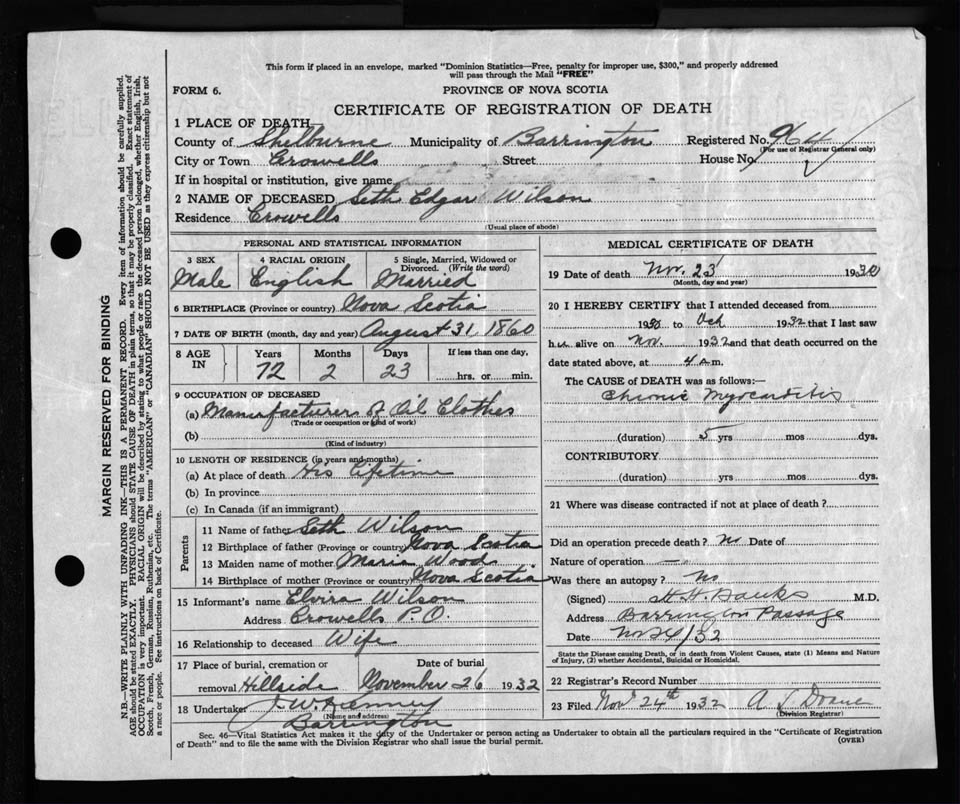 This form if placed in an envelope, marked "Dominion Statistics—Free, penalty for improper use, $300," and properly addressed
will pass through the Mail "FREE"
FORM 6.
PROVINCE OF NOVA SCOTIA
CERTIFICATE OF REGISTRATION OF DEATH
1 PLACE OF DEATH
County of Shelburne Municipality of Barrington Registered No. 964
(For use of Registrar General only)
City or Town Crowells Street House No.
If in hospital or institution, give name
2 NAME OF DECEASED Seth Edgar Wilson
Residence Crowells
(Usual place of abode)
PERSONAL AND STATISTICAL INFORMATION
3 SEX 4 RACIAL ORIGIN 5 Single, Married, Widowed or
Divorced. (Write the word)
Male English Married
6 BIRTHPLACE (Province or country) Nova Scotia
7 DATE OF BIRTH (month, day and year) August 31, 1860
8 AGE IN Years Months Days If less than one day,
72 2 23 hrs. or min.
9 OCCUPATION OF DECEASED
(a) Manufacturers of Oil Clothes
(Trade or occupation or kind of work)
(b)
(Kind of industry)
10 LENGTH OF RESIDENCE (in years and months)
(a) At place of death His Lifetime
(b) In province
(c) In Canada (if an immigrant)
Parents
11 Name of father Seth Wilson
12 Birthplace of father (Province or country) Nova Scotia
13 Maiden name of mother Maria Wood
14 Birthplace of mother (Province or country) Nova Scotia
15 Informant's name Elvira Wilson
Address Crowells P. O.
16 Relationship to deceased Wife
17 Place of burial, cremation or Date of burial
removal Hillside November 26 1932
18 Undertaker J. W. Kenney
(Name and address)
Barrington
MEDICAL CERTIFICATE OF DEATH
19 Date of death Nov. 23 1930
(Month, day and year)
20 I HEREBY CERTIFY that I attended deceased from
19 to Oct 1932 that I last saw
h alive on Nov. 1932 and that death occurred on the
date stated above, at 4 a m.
The CAUSE OF DEATH was as follows:—
Chronic Myocarditis
(duration) 5 yrs mos dys.
CONTRIBUTORY
(duration) yrs mos dys.
21 Where was disease contracted if not at place of death?
Did an operation precede death? No Date of
Nature of operation —
Was there an autopsy? No
(Signed) H. H. Banks M.D.
Address Barrington Passage
Date Nov 24/32
State the Disease causing Death, or in death from Violent Causes, state (1) Means and Nature
of Injury, (2) whether Accidental, Suicidal or Homicidal.
22 Registrar's Record Number
23 Filed Nov 24th 1932 A L Doane
(Division Registrar)
Sec. 46—Vital Statistics Act makes it the duty of the Undertaker or person acting as Undertaker to obtain all the particulars required in the "Certificate of Registration
of Death" and to file the same with the Division Registrar who shall issue the burial permit.
(OVER)
MARGIN RESERVED FOR BINDING
N.B.—WRITE PLAINLY WITH UNFADING INK—THIS IS A PERMANENT RECORD. Every item of information should be carefully supplied.
AGE should be stated EXACTLY. PHYSICIANS should STATE CAUSE OF DEATH in plain terms, so that it may be properly classified. Exact statement of
OCCUPATION is very important. RACIAL ORIGIN will be described by stating to what people or race the deceased person belonged, whether English, Irish,
Scotch, French, German, Russian, Ruthenian, etc. The terms "AMERICAN" or "CANADIAN" SHOULD NOT BE USED as they express citizenship but not
a race or people. See instructions on back of Certificate.